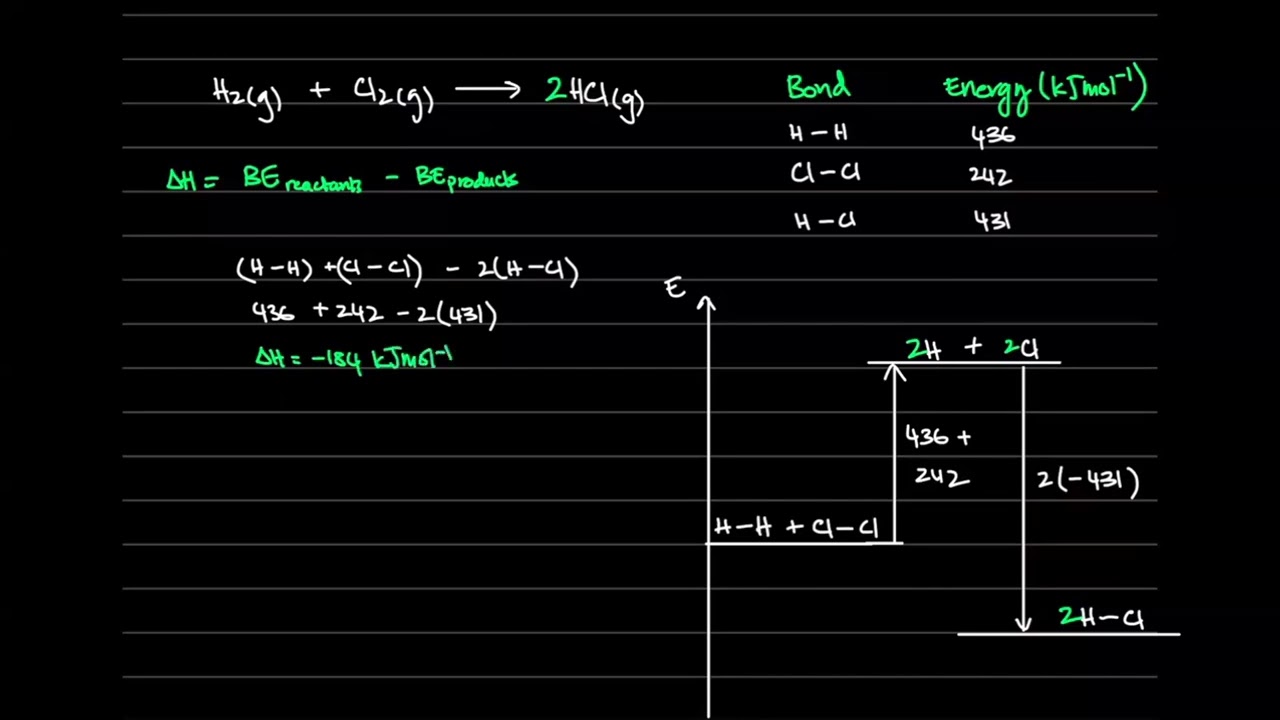 H2(g) + Cl2(g) ⟶ 2HCl(g)
ΔH = BE reactants - BE products
(H-H) + (Cl-Cl) - 2(H-Cl)
436 + 242 - 2(431)
ΔH = -184 kJmol⁻¹
Bond Energy (kJmol⁻¹)
H-H 436
Cl-Cl 242
H-Cl 431
E
2H + 2Cl
436 +
242
2(-431)
H-H + Cl-Cl
2H-Cl